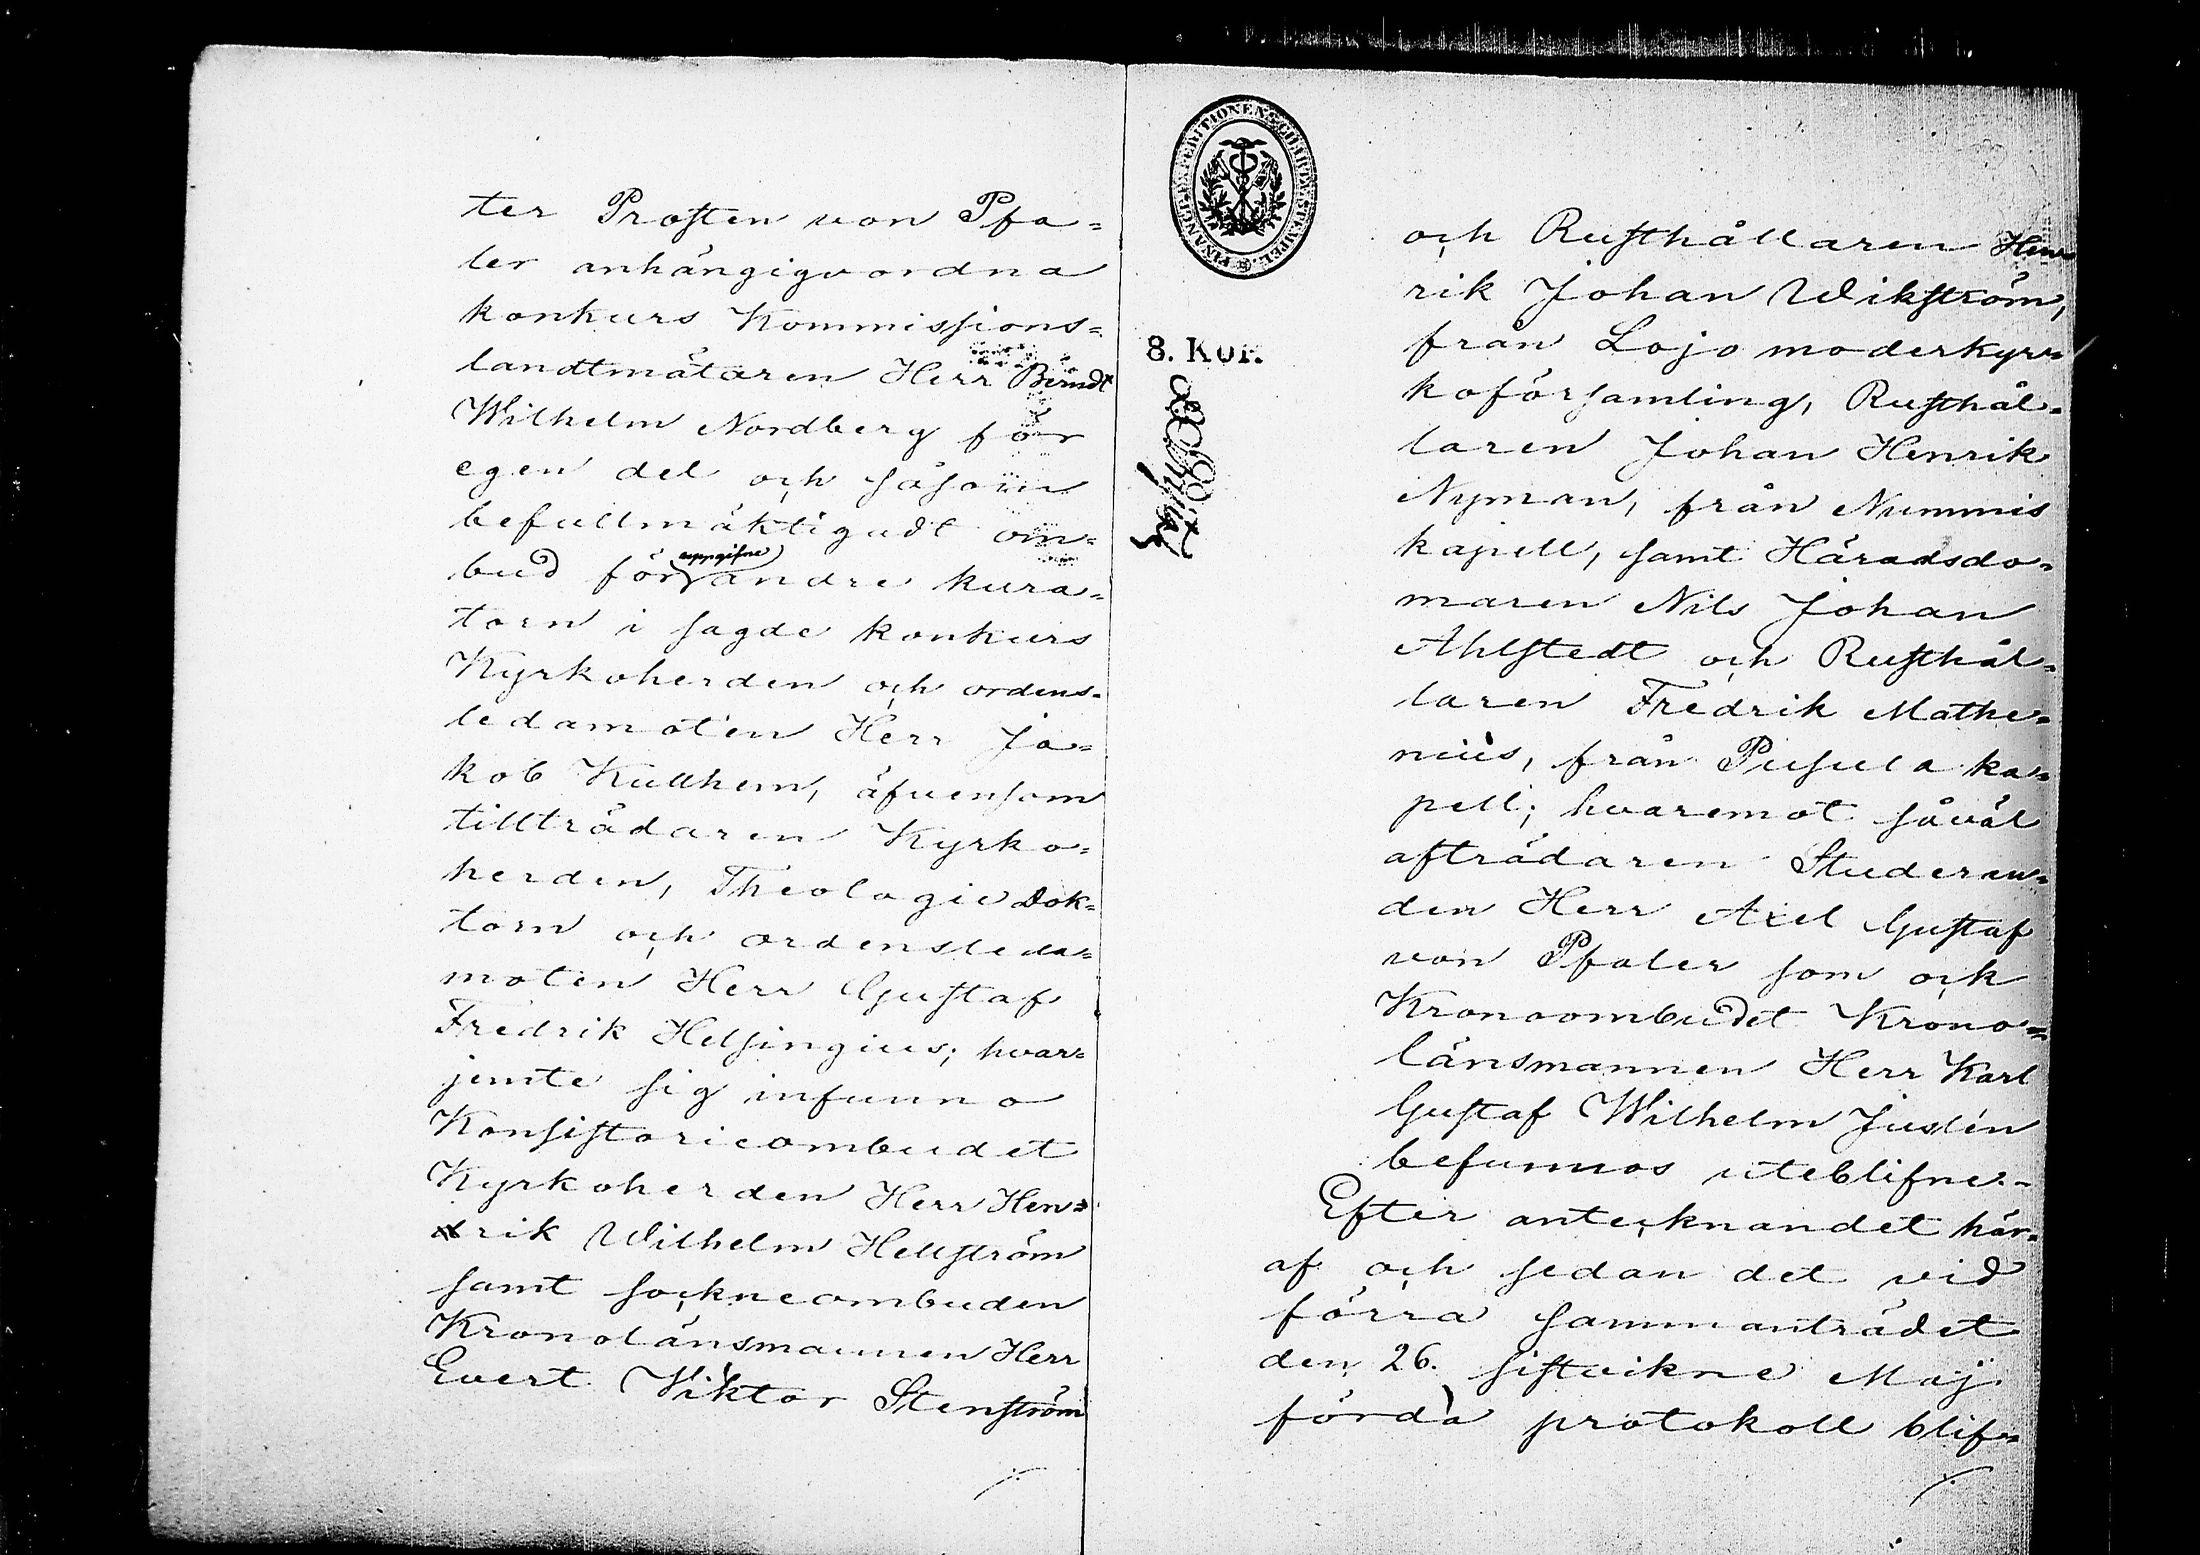 ter Prosten von Pfa=
ler anhängigvordna
konkurs Kommissions=
landtmätaren Herr Berndt
Wilhelm Nordberg för
egen del och såsom
befullmäktigadt om=
bud för uppgifne andre kura=
torn i sagde konkurs
Kyrkoherden och ordens=
ledamoten Herr Ja=
kob Kullhem, äfvensom
tillträdaren Kyrko=
herden, Theologie Dok=
torn och ordensleda=
moten Herr Gustaf
Fredrik Helsingius; hvar=
jemte sig infunno
Konsistorieombudet
Kyrkoherden Herr Hen=
rik Wilhelm Hellström
samt sockneombuden
Kronolänsmannen Herr
Evert Viktor Stenström
FINANCE EXPEDITIONENS CHARTÆ STEMPEL
8. Kop.
och Rusthållaren Hen
rik Johan Wikström,
från Lojo moderkyr=
koförsamling, Rusthål=
laren Johan Henrik
Nyman, från Nummis
kapell, samt Häradsdo=
maren Nils Johan
Ahlstedt och Rusthål=
laren Fredrik Mathe=
nius, från Pusula ka=
pell; hvaremot såväl
afträdaren Studeran=
den Herr Axel Gustaf
von Pfaler som ock
Kronoombudet Krono=
länsmannen Herr Karl
Gustaf Wilhelm Juslén
befunnos uteblifne.-
Efter antecknandet här=
af och sedan det vid
förra sammanträdet
den 26. sistvikne Maj
förda protokoll blif=